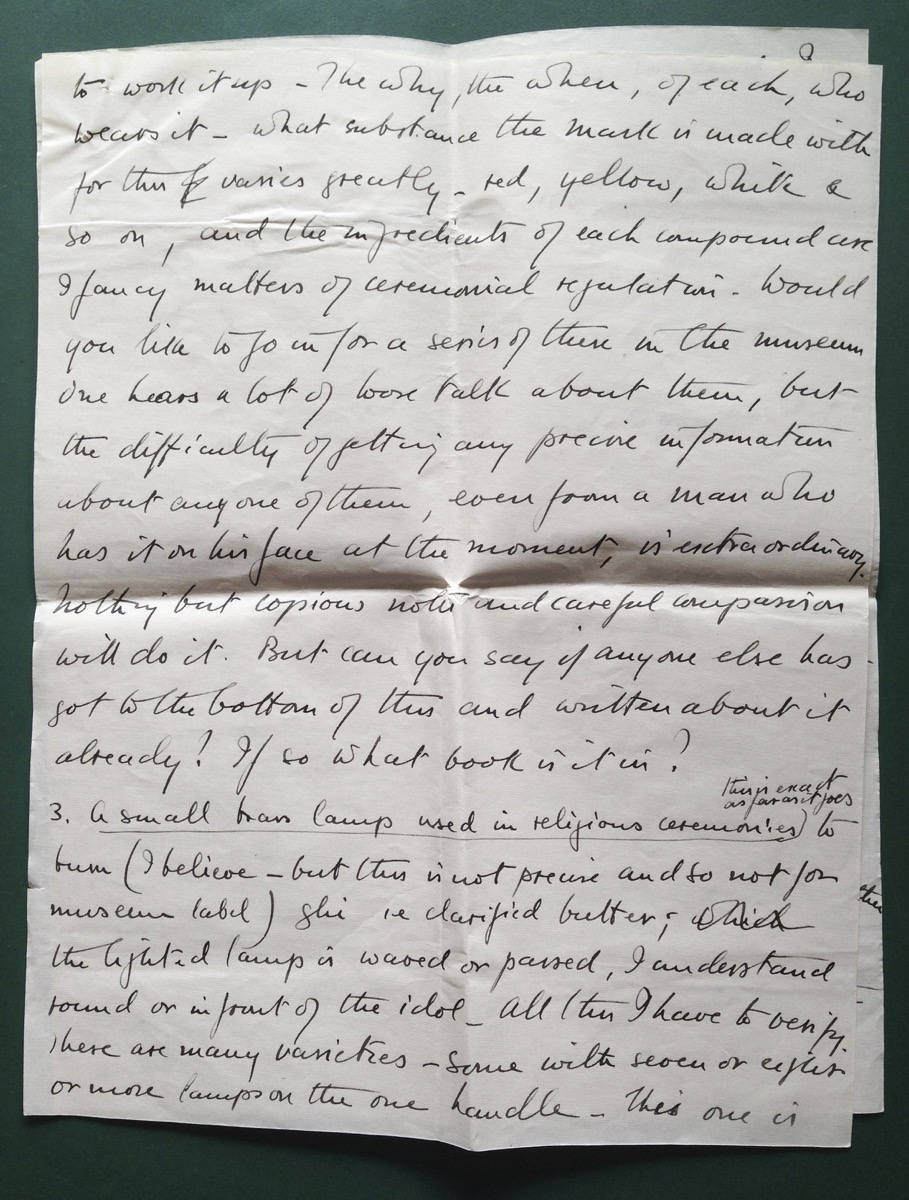 to work it up - The why, the when, of each, who
wears it - what substance the mark is made with
for this varies greatly - red, yellow, white &
so on, and the ingredients of each compound are
I fancy matters of ceremonial regulation. Would
you like to go in for a series of these in the museum
One hears a lot of loose talk about them, but
the difficulty of getting any precise information
about anyone of them, even from a man who
has it on his face at the moment, is extraordinary.
Nothing but copious notes and careful comparison
will do it. But can you say if anyone else has
got to the bottom of this and written about it
already? If so what book is it in?
this is exact
as far as it goes
3. A small brass lamp used in religious ceremonies) to
burn (I believe - but this is not precise and so not for
museum label) ghi ie clarified butter; which
the lighted lamp is waved or passed, I understand
round or in front of the idol - All this I have to verify.
There are many varieties - some with seven or eight
or more lamps on the one handle - this one is